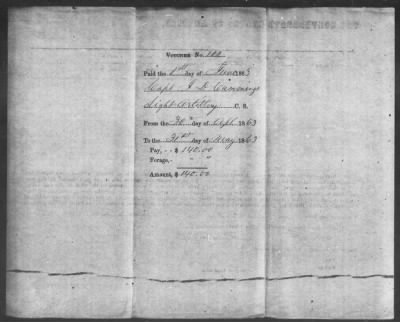 Voucher No. 100
Paid the 1st day of June 1863
Capt. J D Cummings
Light Artillery C. S.
From the 30" day of Sept 1863
To the 31st day of May 1863
Pay, - - $ 140.00
Forage, - " "
Amount, $ 140.00